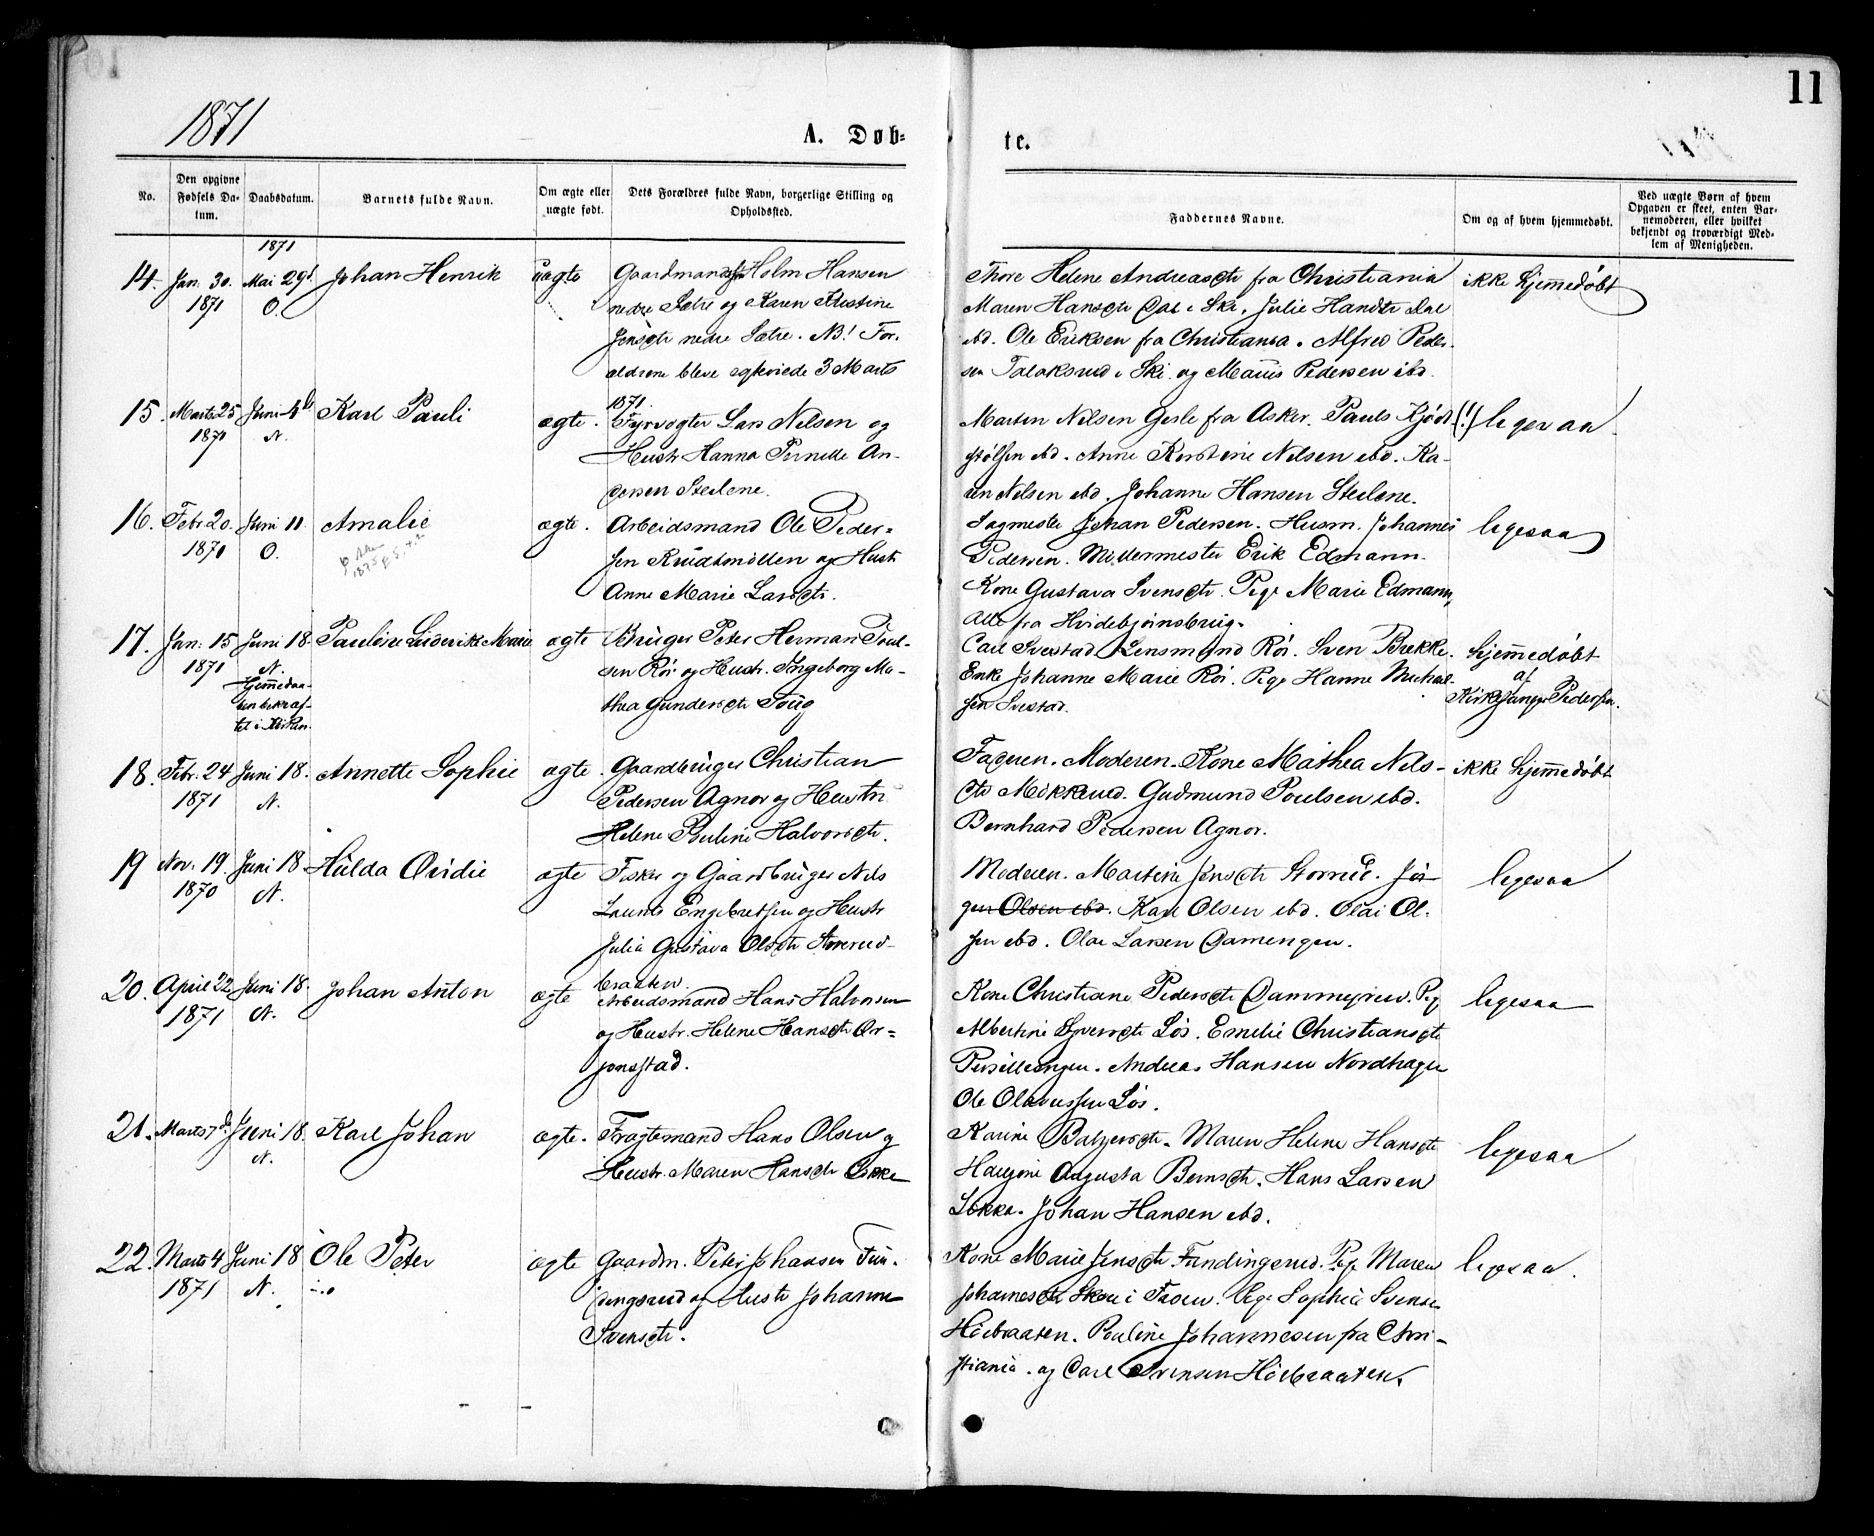 11
1871
A. Døb-
te.
No.
Den opgivne Fødsels Da-tum.
Daabsdatum.
Barnets fulde Navn.
Om ægte eller uægte født.
Dets Forældres fulde Navn, borgerlige Stilling og Opholdssted.
Faddernes Navne.
Om og af hvem hjemmedøbt.
Ved uægte Børn af hvem Opgaven er skeet, enten Bar-nemoderen, eller hvilket bekjendt og troværdigt Med-lem af Menigheden.
1871
14. Jan. 30. Mai 29d Johan Henrik uægte Gaardmands Holm Hansen
1871 O. nedre Sætre og Karen Kristine
Jensdtr nedre Sætre. NB! For-
ældrene bleve egteviede 3 Marts
1871
Thore Helene Andreasdtr fra Christiania ikke hjemmedøbt
Maren Hansdtr Dal i Ski, Julie Hansdtr Dal
ibd. Ole Eriksen fra Christiania. Alfred Peder-
sen Taraldrud i Ski og Maurits Pedersen ibd.
15. Marts 25 Juni 4de Karl Pauli ægte. Fyrvogter Lars Nilsen og
1871 N. Hustr Hanna Pernelle An-
dersen Steilene.
Morten Nilsen Gesle fra Asker. Pauls Kjöd- (!) legesaa
stølsen ibd. Anne Kirstine Nilsen ibd. Ka-
ren Nilsen ibd. Johanne Hansen Steilene.
16. Febr 20. Juni 11 Amalie ægte. Arbeidsmand Ole Peder-
1871 O. sen Knudsmölten og Hustr
Anne Marie Larsdtr.
Sagmester Johan Pedersen. Husm. Johannes legesaa
Pedersen. Möllermester Erik Edmann.
Kone Gustava Svensdtr. Pige Marie Edmann,
Alle fra Hvidebjørnsbrug.
17. Jan. 15 Juni 18. Pauline Fredrikke Marie ægte Bruger Peter Herman Poul-
1871 N. sen Röi og Hustr. Ingeborg Ma-
Hjemmedaa-
ben bekræf-
tet i Kirken. thea Gundersdtr Toug
Carl Svestad Lensmand Röi. Sven Brekke. hjemmedøbt
Enke Johanne Marie Röi. Pige Hanne Michael- af
sen Svestad. Kirkesanger Pedersen.
18. Febr. 24 Juni 18. Annette Sophie ægte. Gaardbruger Christian
1871 N. Pedersen Agnor og Hustr
Helene Pauline Halvorsdtr.
Faderen. Moderen. Kone Mathea Nils- ikke hjemmedøbt
dtr Mikkerud. Gudmund Poulsen ibd.
Bernhard Pedersen Agnor.
19 Nov. 19. Juni 18 Hulda Ovidie ægte Fisker og Gaardbruger Nils
1870 N. Laurits Engebretsen og Hustr
Julia Gustava Olsdtr Storerud-
braaten.
Moderen. Martine Jensdtr Storrud. Jör- legesaa
gen Olsen ibd. Karl Olsen ibd. Olai Ol-
sen ibd. Olae Larsen Damengen.
20. April 22 Juni 18. Johan Anton ægte Arbeidsmand Hans Halvorsen
1871 N. og Hustr. Helene Hansdtr Ar-
jonsstad.
Kone Christiane Pedersdtr Dammyren. Pig legesaa
Albertine Syversdtr Lös. Emelie Christiansdtr
Persillengen. Andreas Hansen Nordhagen
Ole Olavussen Lös.
21. Marts 7d. Juni 18. Karl Johan ægte. Fragtemand Hans Olsen og
N. Hustr. Maren Hansdtr Løkke
Karine Baltzersdtr. Maren Helene Hansdtr legesaa
Augusta Berntsdtr. Hans Larsen
Løkka. Johan Hansen ibd.
22. Marts 4 Juni 18 Ole Peter ægte Gaardm. Peter Johansen Fun-
1871 N. dingsrud og Hustr Johanne
Svensdtr.
Kone Marie Jensdtr Fundingsrud. Pige Maren legesaa.
Johannesdtr Skou i Froen. Pige Sophie Svensen
Höibraaten. Pauline Johannesen fra Chri-
stiania. og Carl Svensen Höibraaten.